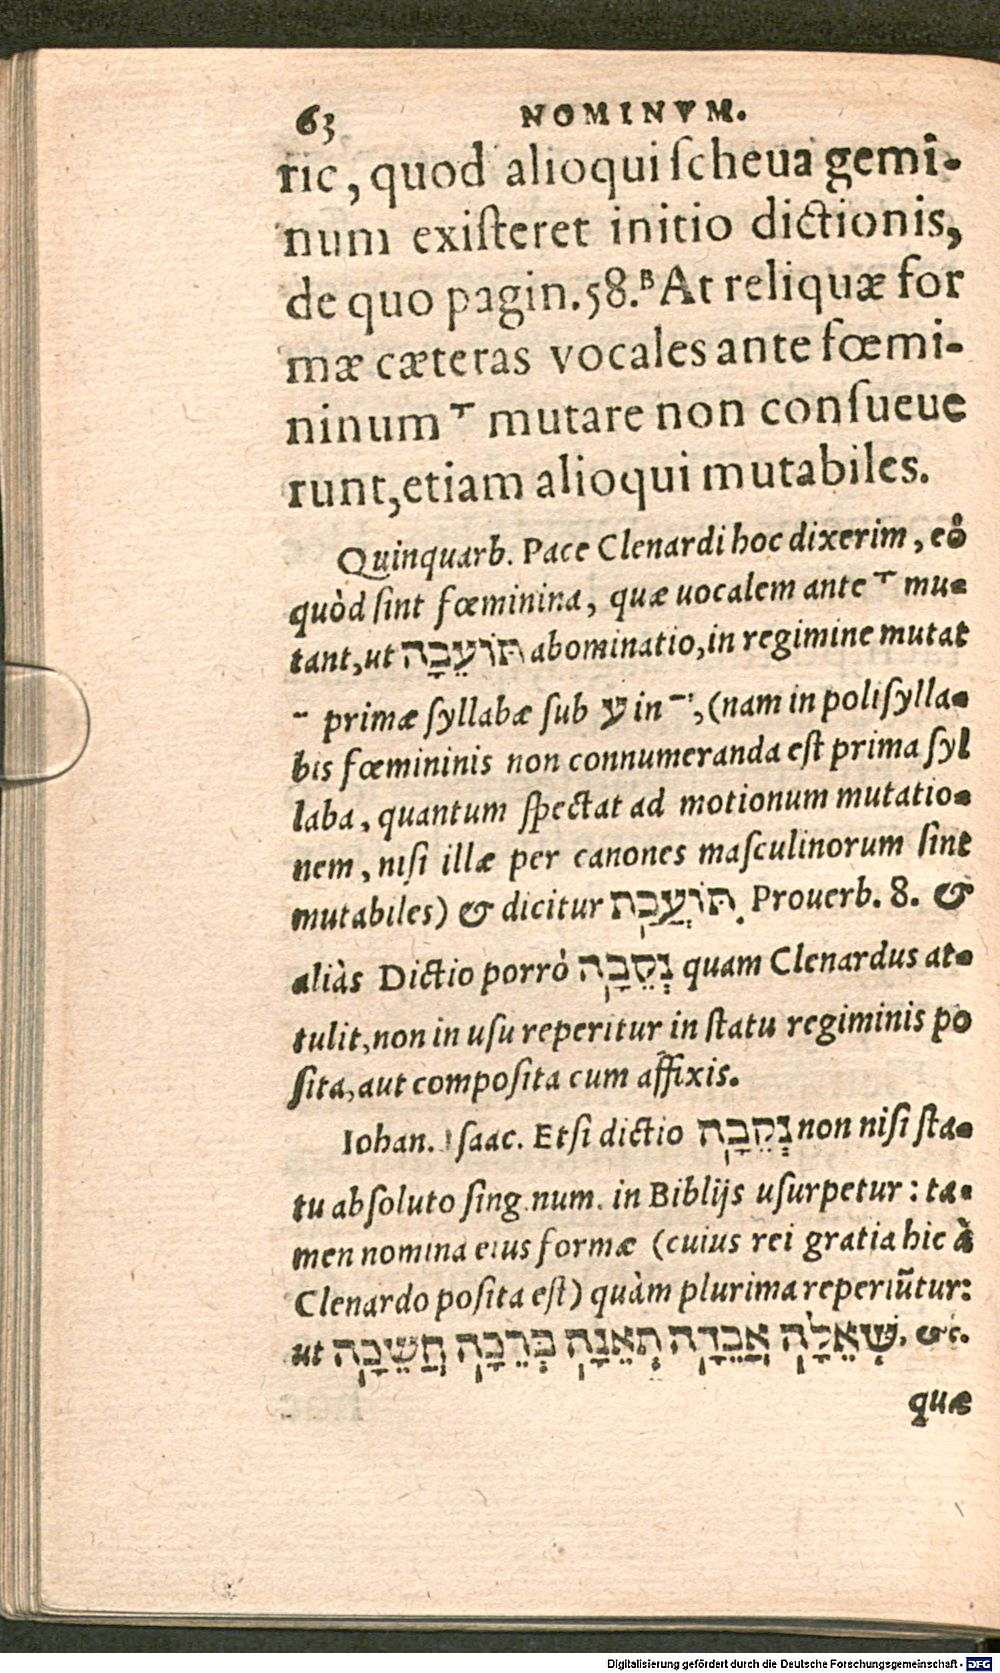 63 NOMINVM.
ric, quod alioqui ſcheua gemi-
num exiſteret initio dictionis,
de quo pagin. 58. ᴮ At reliquæ for
mæ cæteras vocales ante fœmi-
ninum ָ mutare non conſueue
runt, etiam alioqui mutabiles.
Quinquarb. Pace Clenardi hoc dixerim, eò
quòd ſint fœminina, quæ uocalem ante ָ mu-
tant, ut תּוֹעֵבָה abominatio, in regimine mutat
primæ ſyllabæ ſub ע in ֲ, (nam in poliſylla-
bis fœmininis non connumeranda eſt prima ſyl
laba, quantum ſpectat ad motionum mutatio-
nem, niſi illæ per canones maſculinorum ſint
mutabiles) & dicitur תּוֹעֲבַת Prouerb. 8. &
aliàs Dictio porrò נְקֵבָה quam Clenardus at-
tulit, non in uſu reperitur in ſtatu regiminis po
ſita, aut compoſita cum affixis.
Iohan. Iſaac. Etſi dictio נְקֵבָה non niſi ſta-
tu abſoluto ſing. num. in Biblijs uſurpetur: ta-
men nomina eius formæ (cuius rei gratia hic à
Clenardo poſita eſt) quàm plurima reperiūtur:
ut שְׁאֵלָה אֲבֵדָה תְאֵנָה בְּרֵכָה חֲשֵׁיכָה, &c.
quæ
Digitalisierung gefördert durch die Deutsche Forschungsgemeinschaft - DFG